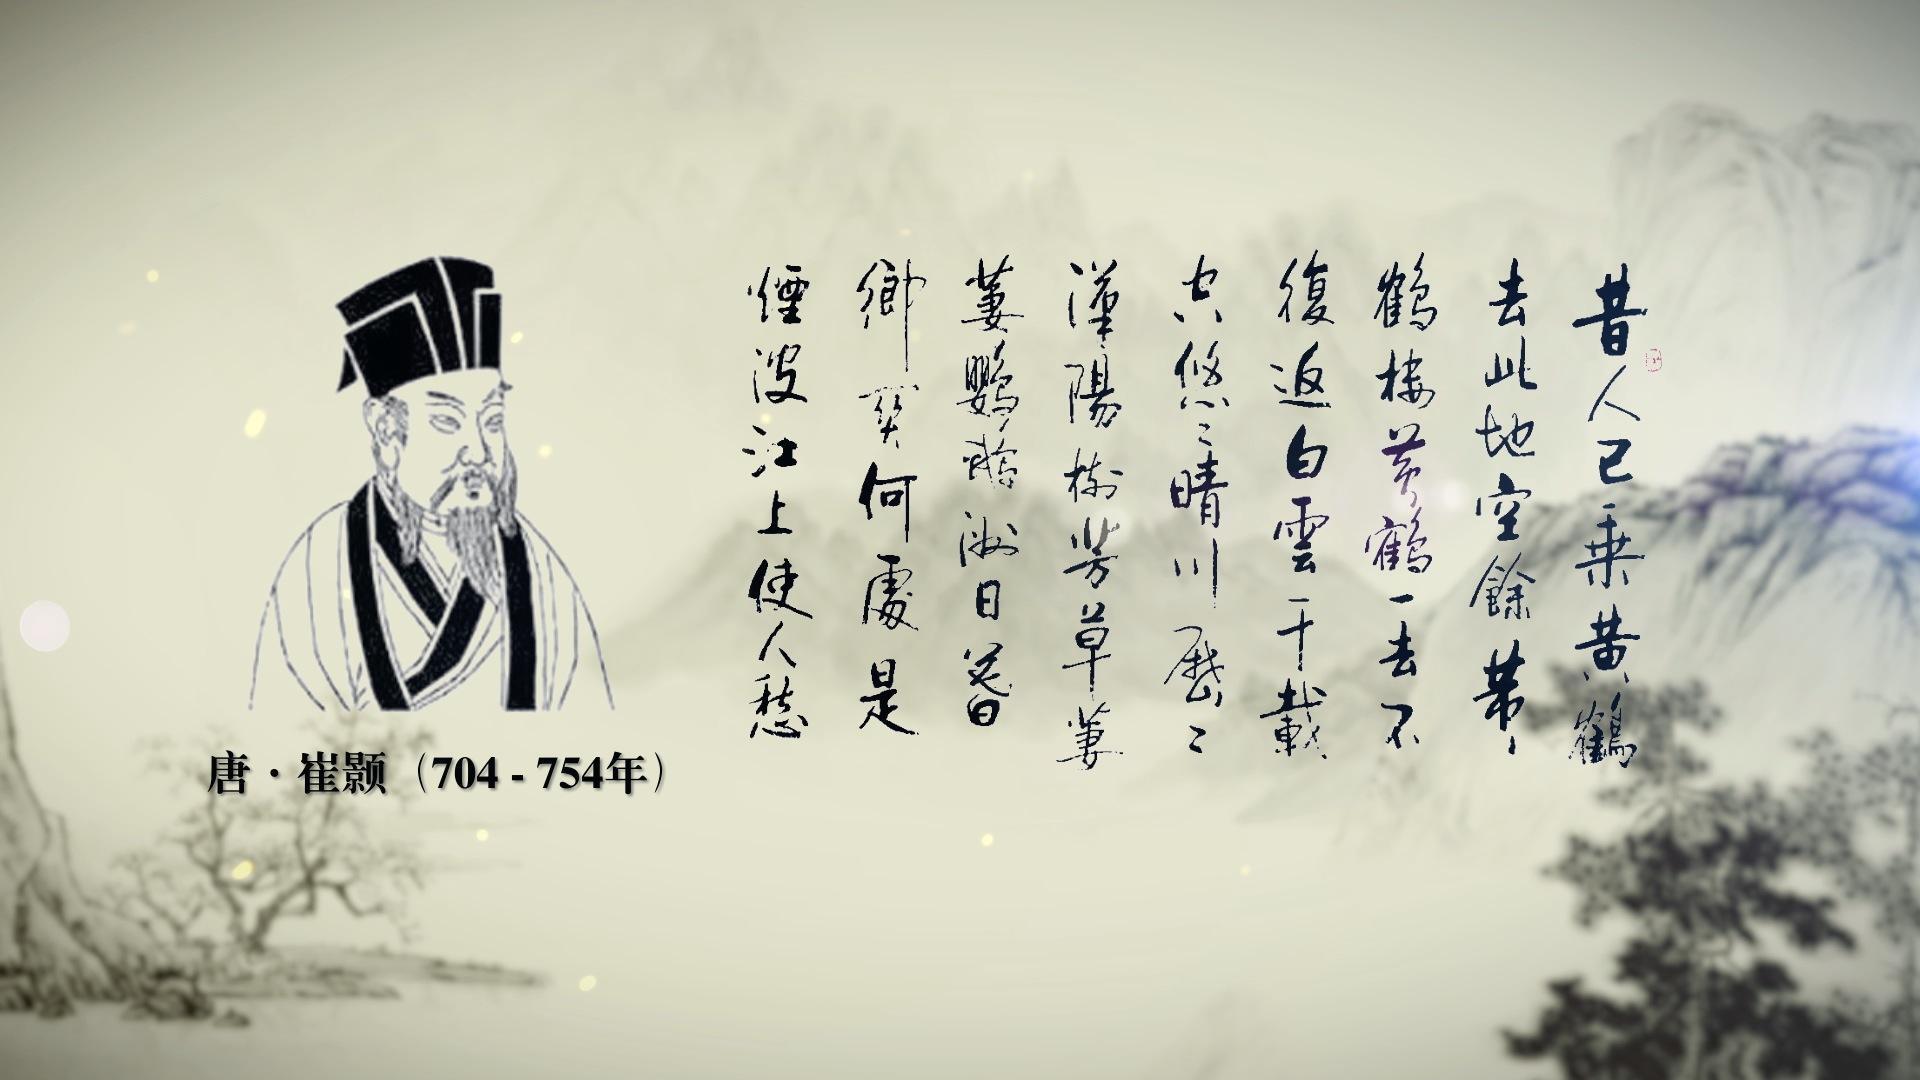 昔人已乘黄鶴
去此地空餘黄
鶴樓黄鶴一去不
復返白雲千載
空悠〻晴川歷〻
漢陽樹芳草萋
萋鸚鵡洲日暮
鄉關何處是
煙波江上使人愁
唐·崔颢（704 - 754年）